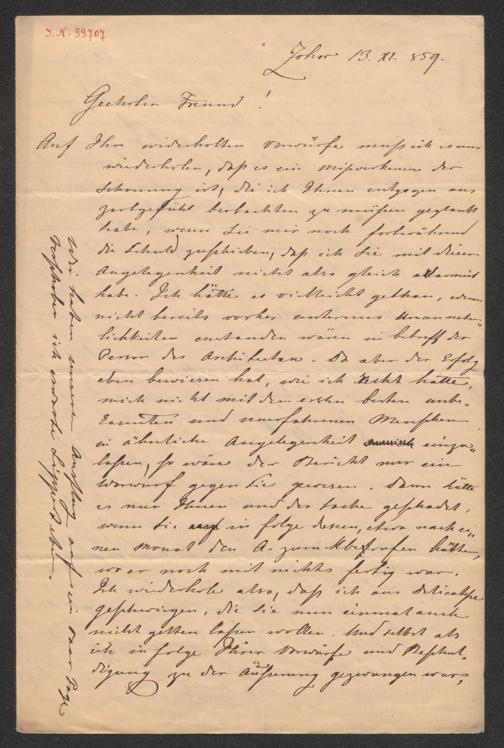 I.N. 99707
13. XI. 859.
Geehrter Freund!
Auf Ihre wiederholten Vorwürfe muss ich es nur
wiederholen, daß es ein misverkennen der
Schonung ist, die ich Ihnen entgegen aus
zartgefühl beobachten zu müßen geglaubt
habe, wenn Sie mir noch fortwährend
die Schuld zuschieben, daß ich Sie mit dieser
Angelegenheit nicht also gleich alarmirt
habe. Ich hätte es vielleicht gethan, wenn
nicht bereits vorher unannehm=
lichkeiten enstanden wären in betreff der
Person des Architecten. Da aber der Erfolg
eben bewiesen hat, wie ich Recht hatte,
mich nicht mit dem ersten besten unbe=
kannten und unerfahrenen Menschen
in ähnliche Angelegenheit einzu=
lassen, so wäre der Bericht nur ein
Vorwurf gegen Sie gewesen. Dann hätte
es nur Ihnen und der Sache geschadet,
wenn Sie in folge dessen, etwa nach ei=
nen Monat den A. zurückberufen hätten,
wo er noch mit nichts fertig war.
Ich wiederhole also, daß ich aus Delicatesse
geschwiegen, die Sie nun einmal auch
nicht gelten lassen wollen. Und selbst als
ich in folge Ihrer Vorwürfe und Beschul=
digung zu der Äußerung gezwungen war,
Wir haben unseren Ausflug auf ein Paar Tage
verschoben ich werde